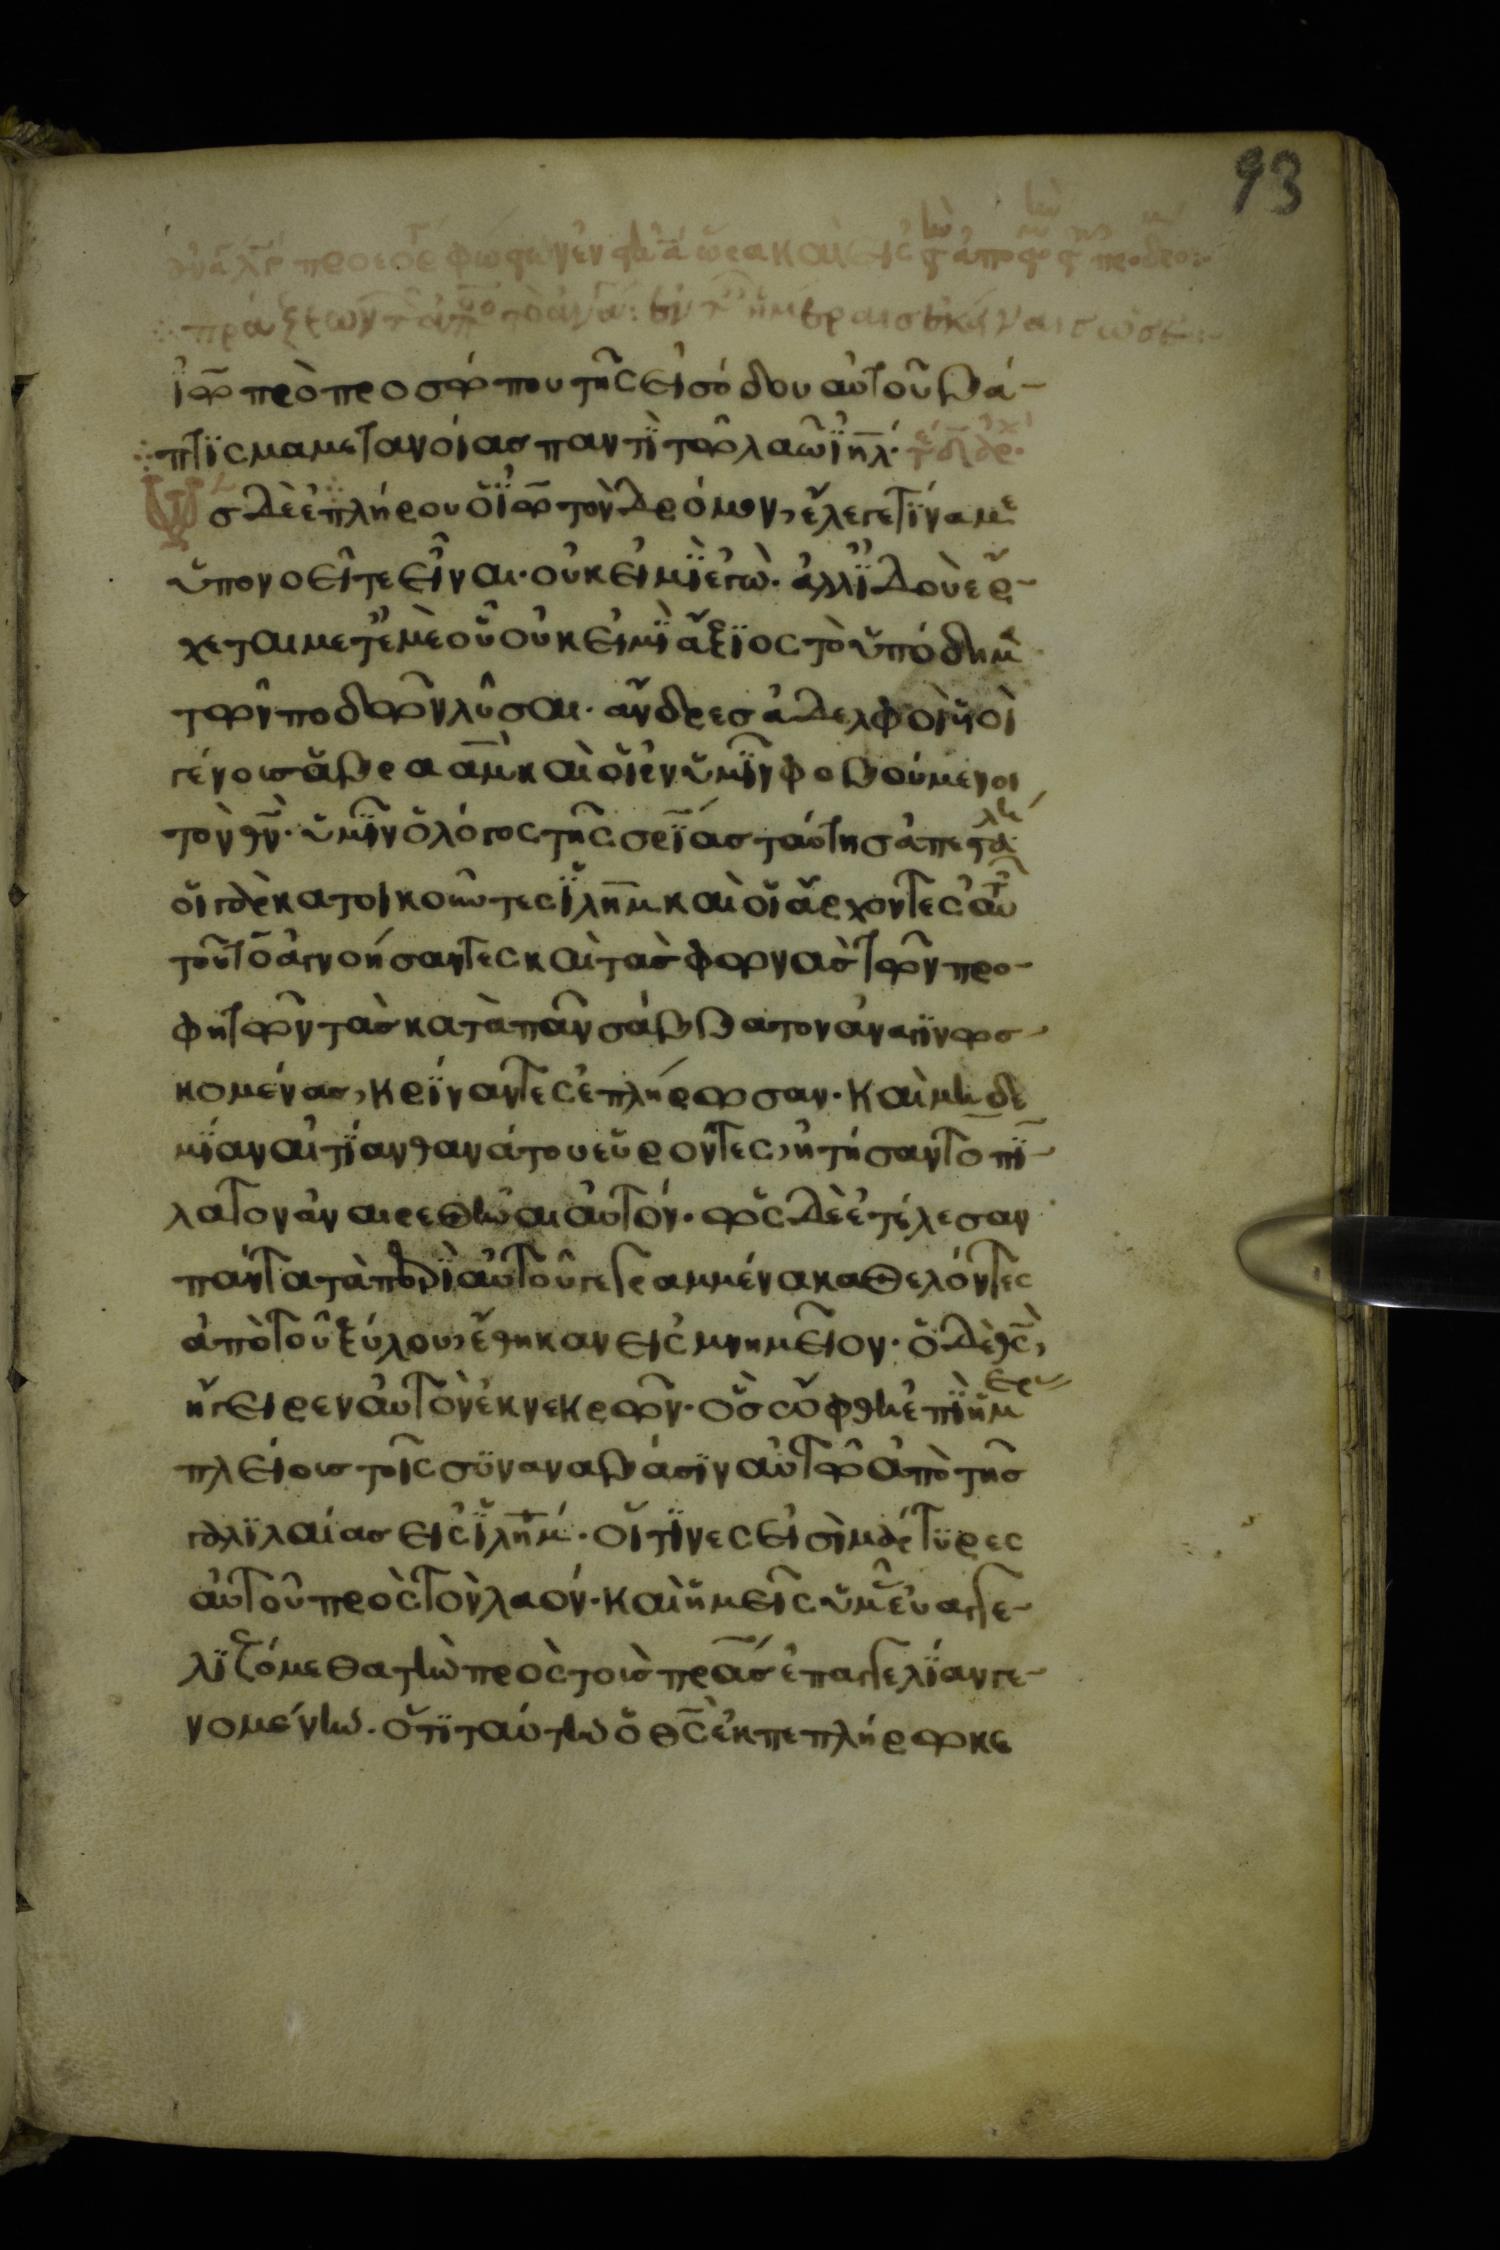 93
ἰω̅ πρὸ προσώπου τῆς εἰσόδου αὐτοῦ βά-
πτϊσμα μετανοίασ παντὶ τῶ λαῶ ϊη̅λ·
ὡσ δὲ ἐπλήρου ὁ ἰω̅ τὸν δρόμον, ἔλεγε τίνα με
ὑπονοεῖτε εἶναι· οὐκ εἰμὶ ἐγὼ· ἀλλ' ἰδοὺ ἔρ-
χεται μετ' ἐμὲ οὗ οὐκ εἰμὶ ἄξϊος τὸ ὑπόδημα
τῶν ποδῶν λῦσαι· ἄνδρεσ ἀδελφοὶ ὑοὶ
γένουσ ἀβρααμ̅ καὶ οἱ ἐν ὑμῖν φοβούμενοι
τὸν θν̅· ὑμῖν ὁ λόγος τῆς σρ̅ίασ ταύτησ ἀπεστάλη·
οἱ γὰρ κατοικοῦντες ϊλη̅μ καὶ οἱ ἄρχοντες αὐτῶν
τοῦτο ἀγνοήσαντες καὶ τὰσ φωνὰσ τῶν προ-
φητῶν τὰσ κατὰ πᾶν σάββατον ἀναγϊνωσ-
κομένασ, κρίναντες ἐπλήρωσαν· καὶ μηδε
μίαν αἰτίαν θανάτου εὑρόντες, ἠτήσαντο πϊ-
λατον ἀναιρεθῆναι αὐτόν· ὡς δὲ ἐτέλεσαν
πάντα τὰ περὶ αὐτοῦ γεγραμμένα καθελόντες
ἀπὸ τοῦ ξύλου, ἔθηκαν εἰς μνημεῖον· ὁ δὲ θς̅,
ἤγειρεν αὐτὸν ἐκ νεκρῶν· ὃς ὤφθη ἐπὶ ἡμερ
πλείουσ τοῖς συναναβάσϊν αὐτῶ ἀπὸ τῆσ
γαλϊλαίασ εἰς ϊλη̅μ· οἵτϊνες εἰσὶ μάρτϋρες
αὐτοῦ πρὸς τὸν λαόν· καὶ ἡμεῖς ὑμᾶς εὐαγγε-
λϊζόμεθα τὴν πρὸς τοὺσ πρ̅ασ ἐπαγγελϊαν γε-
νομένην· ὅτϊ ταύτην ὁ θς̅ ἐκπεπλήρωκε